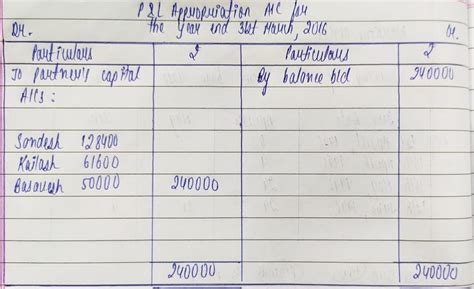 P & L Appropriation A/C for
Dr. the Year end 31st March, 2016 Cr.
Particulars ₹ Particulars ₹
To partner's capital By balance b/d 240000
A/Cs :
Sandesh 128400
Kailash 61600
Basavesh 50000 240000
240000 240000